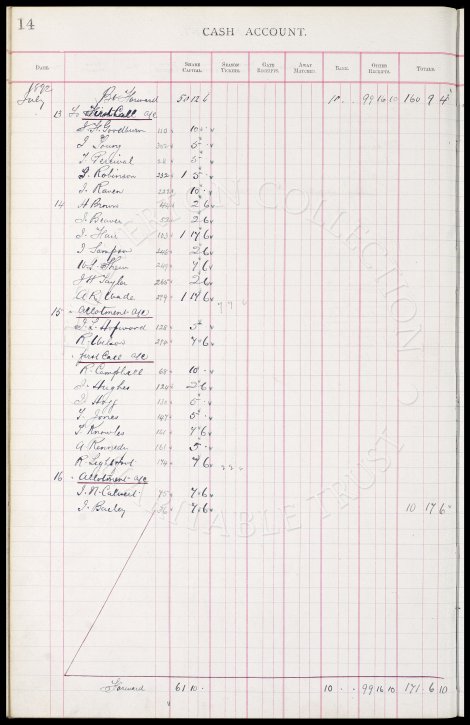 14
CASH ACCOUNT.
DATE. SHARE CAPITAL. SEASON TICKETS. GATE RECEIPTS. AWAY MATCHES. BANK. OTHER RECEIPTS. TOTALS.
1892
July Bt Forward 50 12 6 10 . . 99 16 10 160 9 4
13 To First Call a/c
J. F. Goodburn 110 10 .
J. Young 5 .
T. Percival 28 5 .
G. Robinson 232 1 5 .
J. Raven 10 .
14 A Brown 2 6
J. Beaver 2 6
J. Hair 103 1 17 6
J Sampson 2 6
W. L. 7 6
J H Taylor 2 6
A R Wade 279 1 17 6
15 " Allotment a/c
T. L. Hopwood 128 5 .
R. Wilson 7 6
" First Call a/c
R. Campbell 68 10 .
J. Hughes 124 2 6
J. Hogg 130 5 .
T. Jones 147 5 .
T. Knowles 161 7 6
A Kennedy 161 5 .
R Lightfoot 174 7 6
16 " Allotment a/c
J. N. 75 7 6
J. Bailey 36 7 6 10 17 6
Forward 61 10 . 10 . . 99 16 10 171 6 10